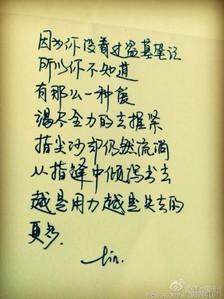 因为你没看过盗墓笔记
所以你不知道
有那么一种爱
竭尽全力的去握紧
指尖沙却仍然流淌
从指缝中倾泻出去
越是用力越是失去的
更多.
lin.